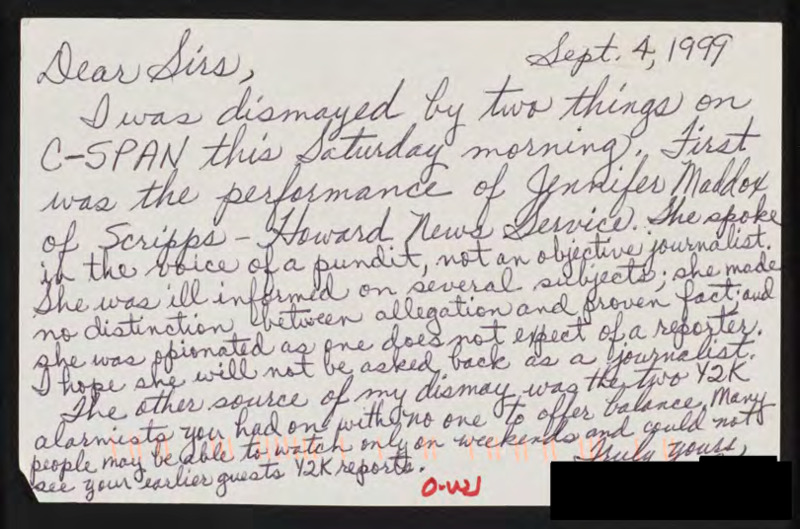 Sept. 4, 1999
Dear Sirs,
I was dismayed by two things on
C-SPAN this Saturday morning. First
was the performance of Jennifer Maddox
of Scripps - Howard News Service. She spoke
in the voice of a pundit, not an objective journalist.
She was ill informed on several subjects; she made
no distinction between allegation and proven fact; and
she was opionated as one does not expect of a reporter.
I hope she will not be asked back as a journalist.
The other source of my dismay was the two Y2K
alarmists you had on with no one to offer balance. Many
people may be able to watch only on weekends and could not
see your earlier guests Y2K reports.
Truly yours,
O-W